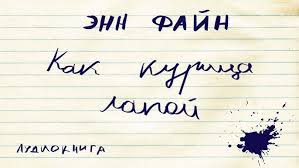 ЭНН ФАЙН
Как курица
лапой
АУДИОКНИГА